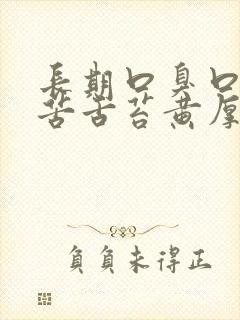 長期口臭口
苦舌苔黄厚
負負未得正